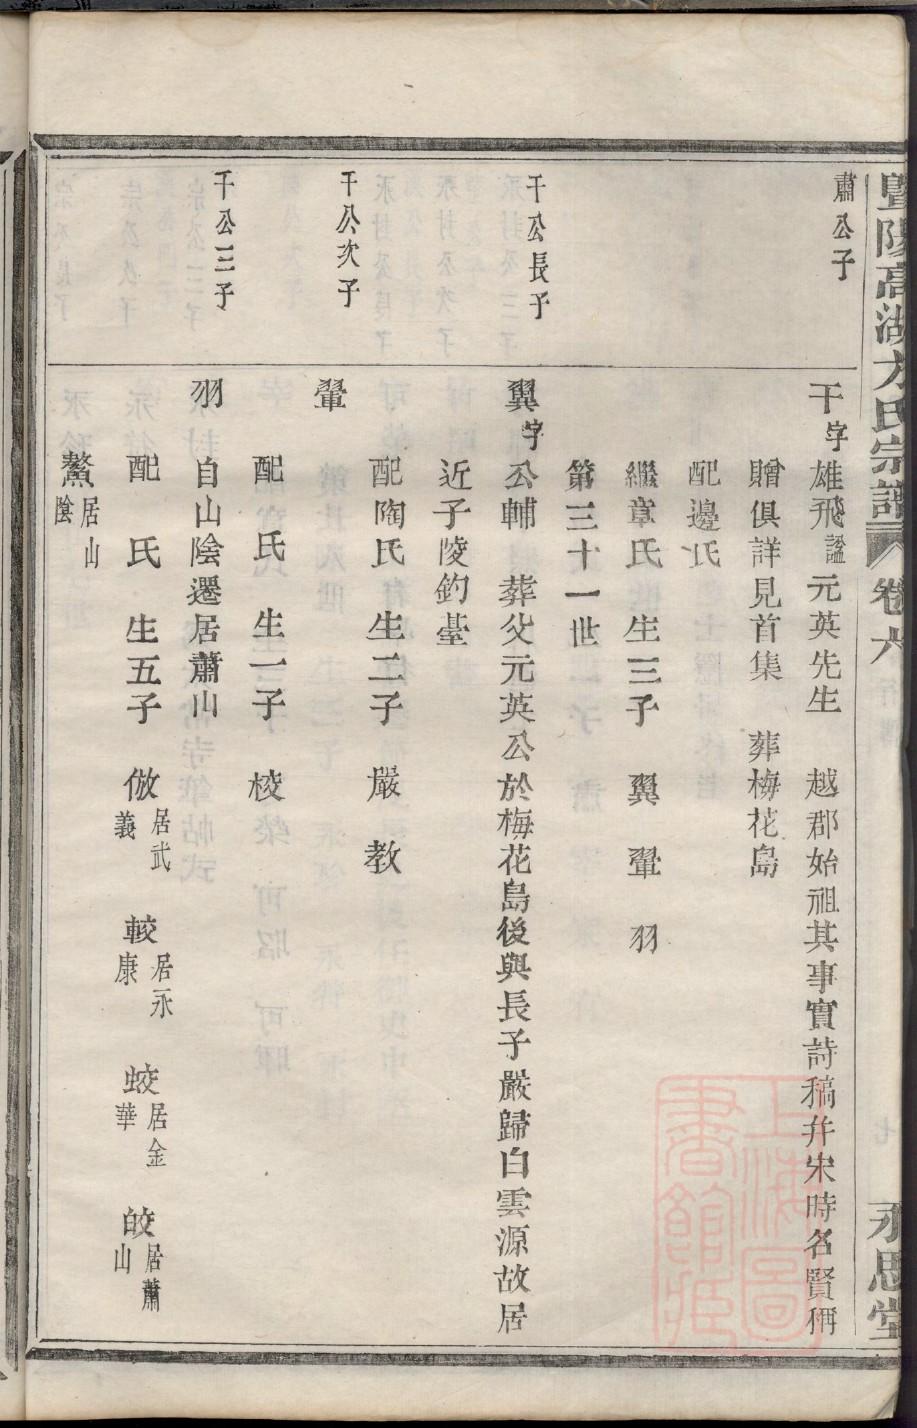 暨陽高湖方氏宗譜 卷六 永思堂
肅公子
干字雄飛諡元英先生 越郡始祖其事實詩稿幷宋時名賢稱
贈俱詳見首集 葬梅花島
配邊氏
繼章氏生三子 翼 翬 羽
第三十一世
干公長子
翼字公輔 葬父元英公於梅花島後與長子嚴歸白雲源故居
近子陵釣臺
配陶氏 生二子 嚴 教
干公次子
翬
配 氏 生一子 校
干公三子
羽 自山陰遷居蕭山
配 氏 生五子 倣居武義 較居永康 蛟居金華 皎居蕭山
鰲居山陰